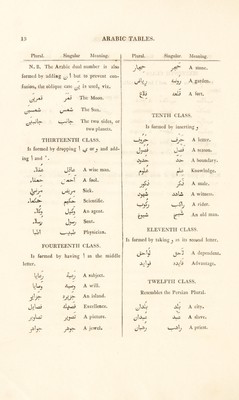 18
ARABIC TABLES.
Plural. Singular Meaning.
N. B. The Arabic dual number is also
formed by adding ان but to prevent con-
fusion, the oblique case ين is used, viz.
قمرين قمر The Moon.
شمسين شمس The Sun.
جانبين جانب The two sides, or
two planets.
THIRTEENTH CLASS.
Is formed by dropping ا or ي and add-
ing ا and ء.
A wise man.
A fool.
Sick.
Scientific.
وكلا وكيل An agent.
Sent.
اطبا طبيب Physician.
FOURTEENTH CLASS.
Is formed by having ا as the middle
letter.
رعايا A subject.
وصايا A will.
جزاير جزيره An island.
فضايل Excellence.
تصاوير تصوير A picture.
جواهر جوهر A jewel.
Plural. Singular Meaning.
A stone.
A garden.
قلاع قلعه A fort.
TENTH CLASS.
Is formed by inserting و
حروف حرف A letter.
فصول فصل A season.
حدود حد A boundary.
علوم علم Knowledge.
ذكور ذكر A male.
شهود شاهد A witness.
A rider.
شيوخ شيخ An old man.
ELEVENTH CLASS.
Is formed by taking و as its second letter.
A dependant,
فوايد فايده Advantage,
TWELFTH CLASS.
Resembles the Persian Plural.
بلدان بلد A city,
عبدان عبد A slave,
A priest.